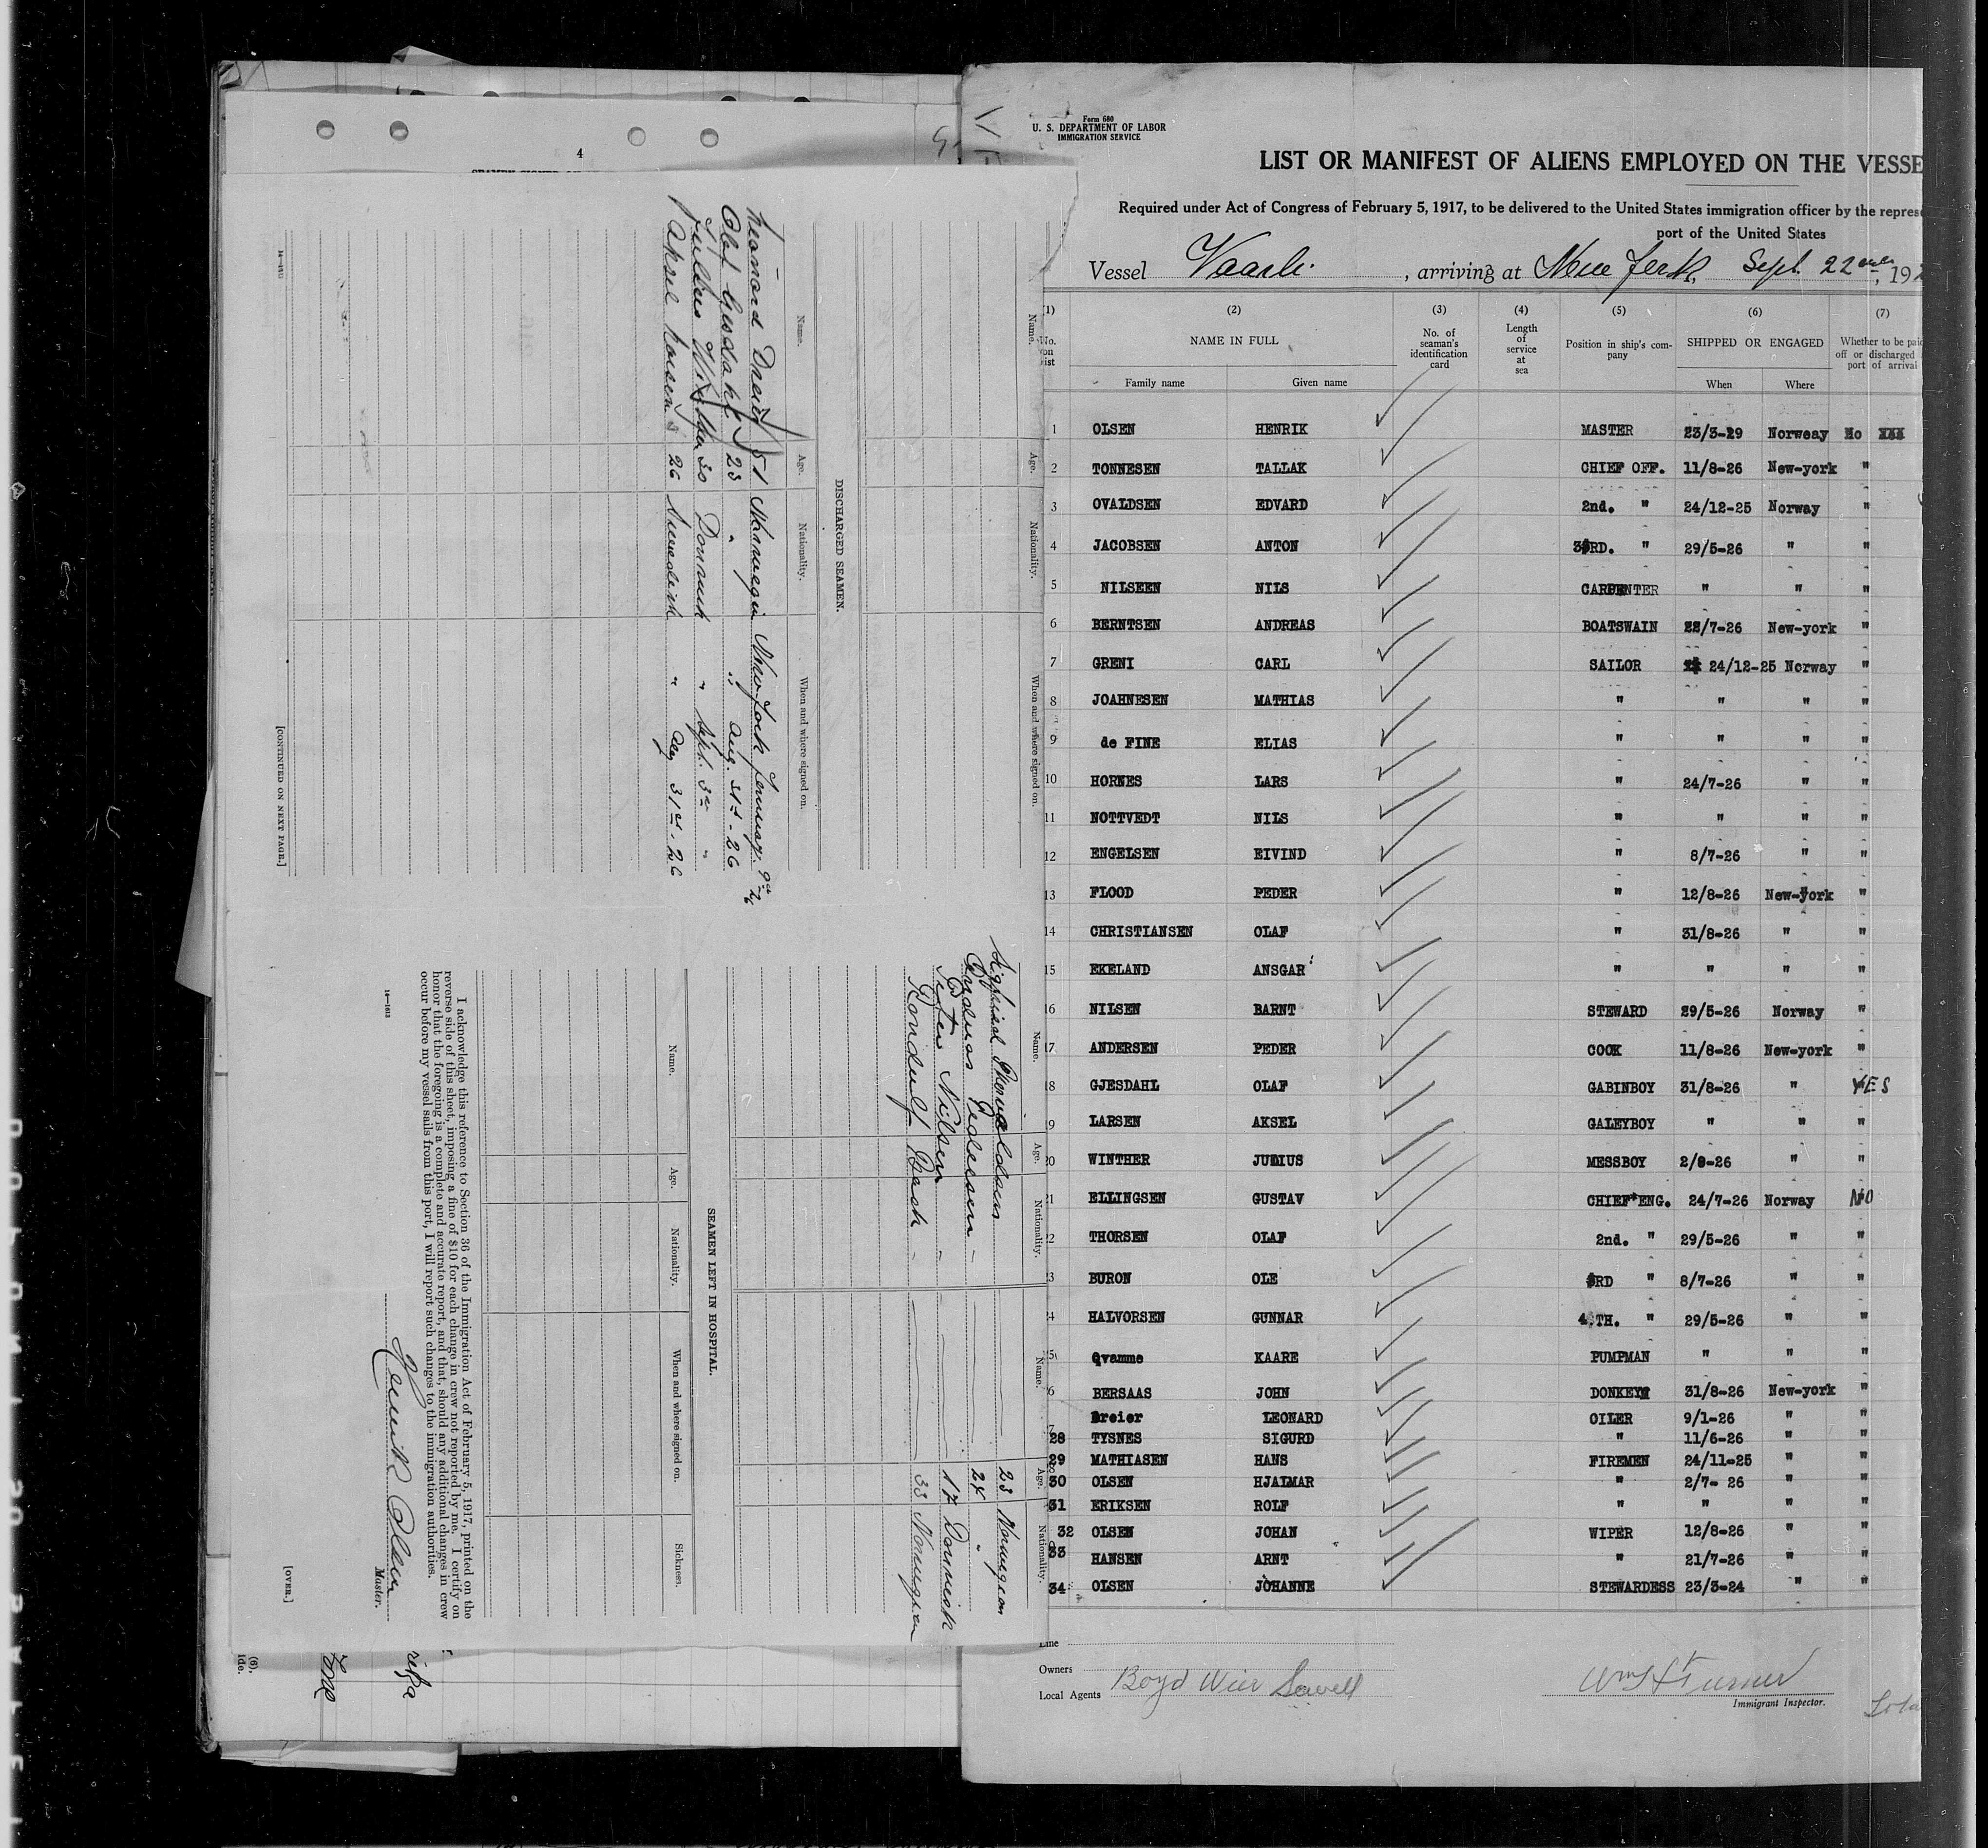 4
DISCHARGED SEAMEN.
Name. Age. Nationality. When and where signed on.
Leonard Dreier 51 Norwegia New York January 9th 26
Olaf Gjesdahl 23 " " Aug. 31st - 26
Julius Winther 30 Danmark " Sept. 3rd "
Aksel Larsen 26 Swedish " Aug 31st - 26
[CONTINUED ON NEXT PAGE.]
Name. Age. Nationality. When and where signed on.
Name. Age. Nationality. Name. Age. Nationality.
Sigfried 23 Norwegian
Pedersen - 24 "
Peter Nilsen - 17 Danmish
Rondulf Bach - 33 Norwegian
SEAMEN LEFT IN HOSPITAL.
Name. Age. Nationality. When and where signed on. Sickness.
I acknowledge this reference to Section 36 of the Immigration Act of February 5, 1917, printed on the
reverse side of this sheet, imposing a fine of $10 for each change in crew not reported by me. I certify on
honor that the foregoing is a complete and accurate report, and that, should any additional changes in crew
occur before my vessel sails from this port, I will report such changes to the immigration authorities.
Henrik Olsen
Master.
[OVER.]
Form 680
U. S. DEPARTMENT OF LABOR
IMMIGRATION SERVICE
LIST OR MANIFEST OF ALIENS EMPLOYED ON THE VESSE
Required under Act of Congress of February 5, 1917, to be delivered to the United States immigration officer by the repres
port of the United States
Vessel Vaarli, arriving at New York, Sept. 22, 192
(1) (2) (3) (4) (5) (6) (7)
No. on list NAME IN FULL No. of seaman's identification card Length of service at sea Position in ship's company SHIPPED OR ENGAGED Whether to be paid off or discharged port of arrival
Family name Given name When Where
1 OLSEN HENRIK MASTER 23/3-29 Norweay No
2 TONNESEN TALLAK CHIEF OFF. 11/8-26 New-york "
3 OVALDSEN EDVARD 2nd. " 24/12-25 Norway "
4 JACOBSEN ANTON 3RD. " 29/5-26 " "
5 NILSEEN NILS CARPENTER " " "
6 BERNTSEN ANDREAS BOATSWAIN 22/7-26 New-york "
7 GRENI CARL SAILOR 24/12-25 Norway "
8 JOAHNESEN MATHIAS " " " "
9 de FINE ELIAS " " " "
10 HORNES LARS " 24/7-26 " "
11 NOTTVEDT NILS " " " "
12 ENGELSEN EIVIND " 8/7-26 " "
13 FLOOD PEDER " 12/8-26 New-york "
14 CHRISTIANSEN OLAF " 31/8-26 " "
15 EKELAND ANSGAR " " " "
16 NILSEN BARNT STEWARD 29/5-26 Norway "
17 ANDERSEN PEDER COOK 11/8-26 New-york "
18 GJESDAHL OLAF GABINBOY 31/8-26 " YES
9 LARSEN AKSEL GALEYBOY " " "
20 WINTHER JULIUS MESSBOY 2/9-26 " "
21 ELLINGSEN GUSTAV CHIEF ENG. 24/7-26 Norway NO
22 THORSEN OLAF 2nd. " 29/5-26 " "
3 BURON OLE 3RD " 8/7-26 " "
4 HALVORSEN GUNNAR 4TH. " 29/5-26 " "
5 Qvamme KAARE PUMPMAN " " "
6 BERSAAS JOHN DONKEY 31/8-26 New-york "
7 Dreier LEONARD OILER 9/1-26 " "
28 TYSNES SIGURD " 11/6-26 " "
29 MATHIASEN HANS FIREMEN 24/11-25 " "
30 OLSEN HJALMAR " 2/7- 26 " "
31 ERIKSEN ROLF " " " "
32 OLSEN JOHAN WIPER 12/8-26 " "
33 HANSEN ARNT " 21/7-26 " "
34 OLSEN JOHANNE STEWARDESS 23/3-24 " "
Line
Owners
Local Agents Boyd Weir Sewell
Wm H Turner
Immigrant Inspector.